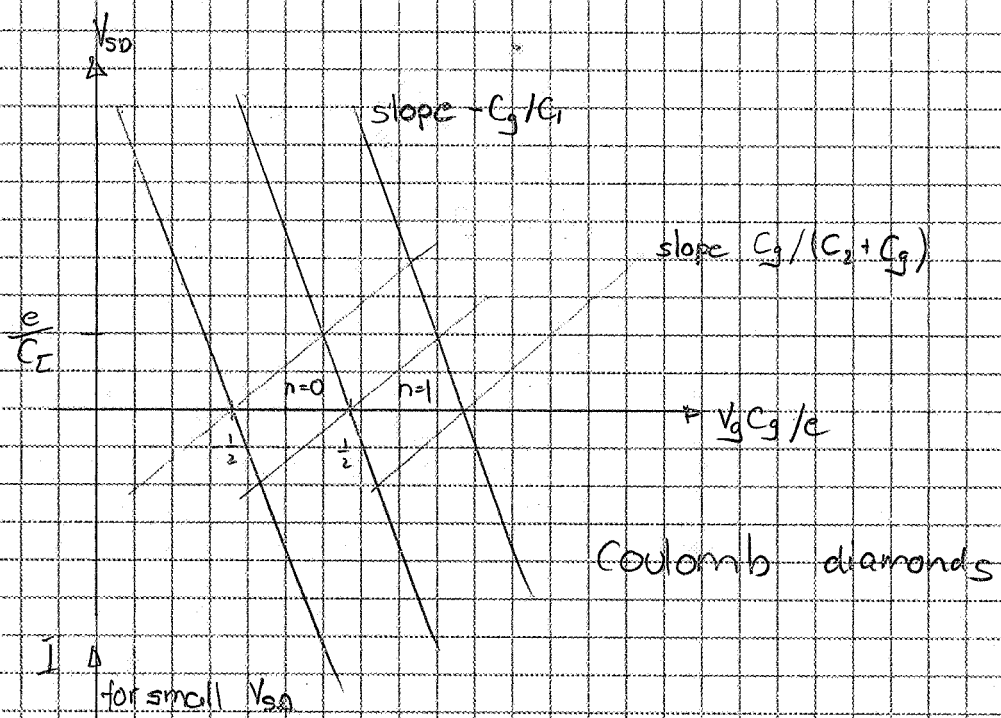 V_SD
slope -Cg/C1
slope Cg/(C2+Cg)
e/CΣ
n=0
n=1
-1/2
1/2
VgCg/e
Coulomb diamonds
I
for small V_SD